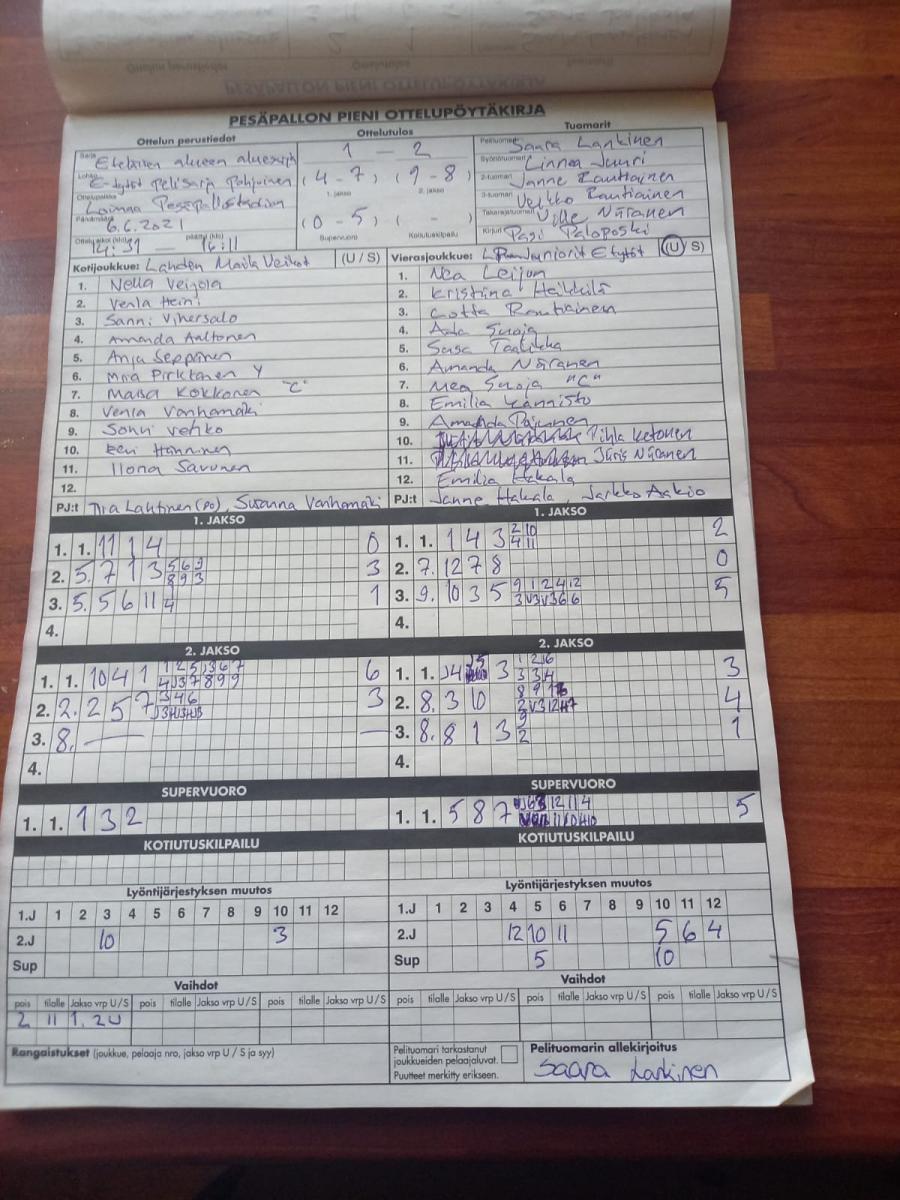 PESÄPALLON PIENI OTTELUPÖYTÄKIRJA
Ottelun perustiedot
Ottelutulos
Tuomarit
Sarja Eteläinen alueen
Lohko E-tytöt pelisarja pohjoinen
Ottelupaikka Pesäpallostadion
Päivämäärä 6.6.2021
Otteluaika (klo) 14:31 – päättyi (klo) 16:11
1 – 2
(4 - 7) (9 - 8)
1. jakso 2. jakso
(0 - 5) ( - )
Supervuoro Kotiutuskilpailu
Pelituomari Saara Lankinen
Syöttötuomari Linnea Juuri
2-tuomari Janne Rautiainen
3-tuomari Veikko Rautiainen
Takarajatuomari Ville Näränen
Kirjuri Pasi Paloposki
Kotijoukkue: Lahden Maila Veikot (U / S)
1. Nella Veijola
2. Venla Heini
3. Sanni Vihersalo
4. Amanda Aaltonen
5. Anja Seppänen
6. Miia Pirktönen Y
7. Maisa Kokkonen "C"
8. Venla Vanhamäki
9. Sonni Vehko
10. Eevi Hänninen
11. Ilona Savunen
12.
PJ:t Tiia Lahtinen (PO), Susanna Vanhamäki
Vierasjoukkue: Juniorit E tytöt (U / S)
1. Nea Leijon
2. Kristiina Heikkilä
3. Lotta Rautiainen
4. Aada Suoja
5. Sasa Taalikka
6. Amanda Näränen
7. Mea Suoja "C"
8. Emilia Kannisto
9. Amanda Pajunen
10. Pihla Ketonen
11. Näränen
12. Emilia Hakala
PJ:t Janne Hakala, Jarkko Aakio
1. JAKSO
1. 1. 11 1 4 0
2. 5. 7 1 3 5 6 9 3
8 9 3
3. 5. 5 6 11 1
4
4.
1. JAKSO
1. 1. 1 4 3 2 10 2
4 11
2. 7. 12 7 8 0
3. 9. 10 3 5 9 1 2 4 12 5
3 V3 V3 6 6
4.
2. JAKSO
1. 1. 10 4 1 6
2. 2. 2 5 7 3 4 6 3
3. 8. — —
4.
2. JAKSO
1. 1. 3 1 2 6 3
3 3 4
2. 8. 3 10 4
3. 8. 8 1 3 9 1
2
4.
SUPERVUORO
1. 1. 1 3 2
SUPERVUORO
1. 1. 5 8 7 5
KOTIUTUSKILPAILU
KOTIUTUSKILPAILU
Lyöntijärjestyksen muutos
1.J 1 2 3 4 5 6 7 8 9 10 11 12
2.J 10 3
Sup
Lyöntijärjestyksen muutos
1.J 1 2 3 4 5 6 7 8 9 10 11 12
2.J 12 10 11 5 6 4
Sup 5 10
Vaihdot
pois tilalle Jakso vrp U / S pois tilalle Jakso vrp U / S pois tilalle Jakso vrp U / S
2 11 1. 2U
Vaihdot
pois tilalle Jakso vrp U / S pois tilalle Jakso vrp U / S pois tilalle Jakso vrp U / S
Rangaistukset (joukkue, pelaaja nro, jakso vrp U / S ja syy)
Pelituomari tarkastanut
joukkueiden pelaajaluvat.
Puutteet merkitty erikseen.
Pelituomarin allekirjoitus
Saara Lankinen